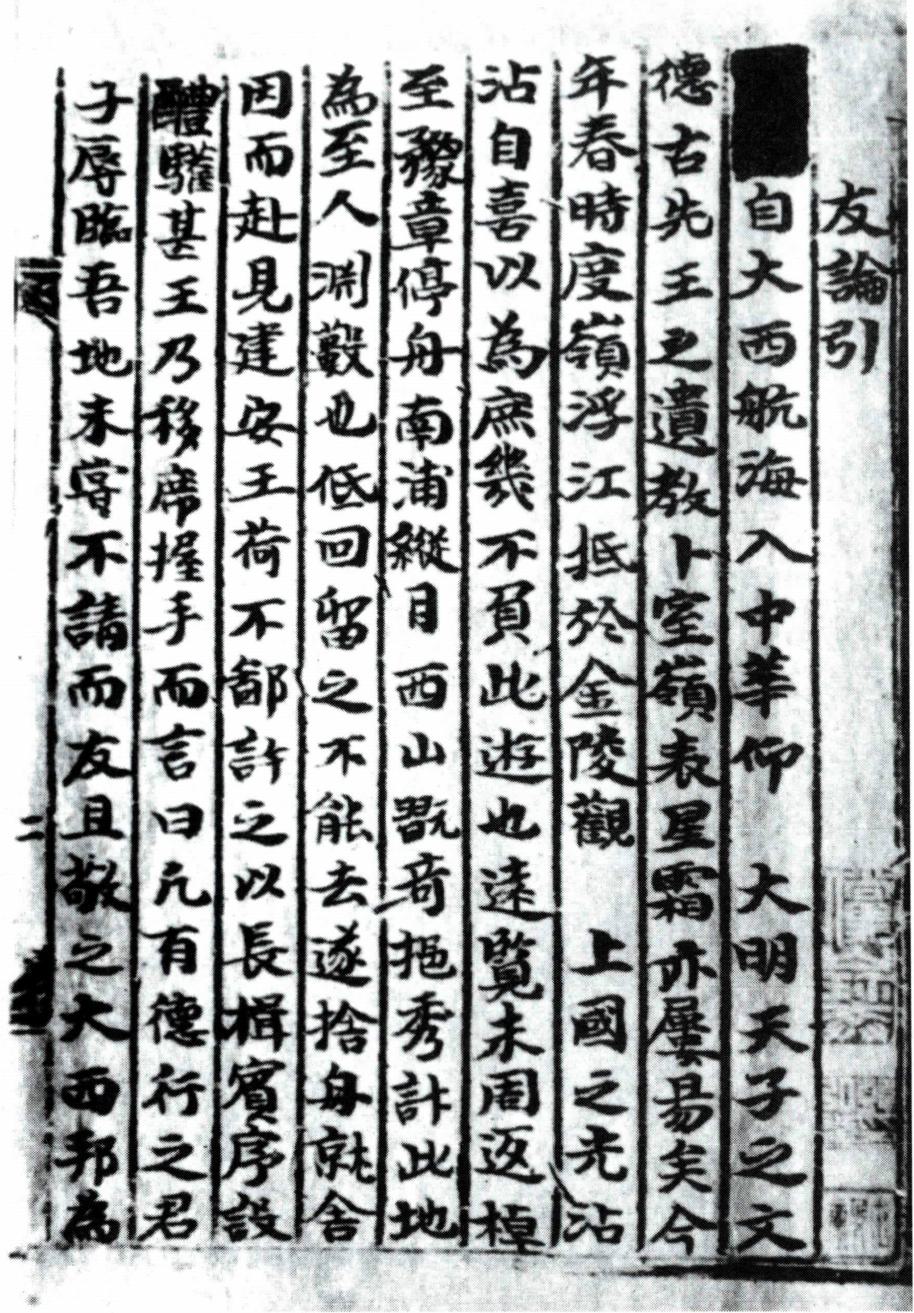 友論引
自大西航海入中華仰　大明天子之文
德古先王之遺教卜室嶺表星霜亦屢易矣今
年春時度嶺浮江抵於金陵觀　上國之光沾
沾自喜以為庶幾不負此遊也遠覽未周返棹
至豫章停舟南浦縱目西山翫奇挹秀計此地
為至人淵藪也低回留之不能去遂捨舟就舍
因而赴見建安王荷不鄙許之以長揖賓序設
醴驩甚王乃移席握手而言曰凡有德行之君
子辱臨吾地未嘗不請而友且敬之大西邦為
二